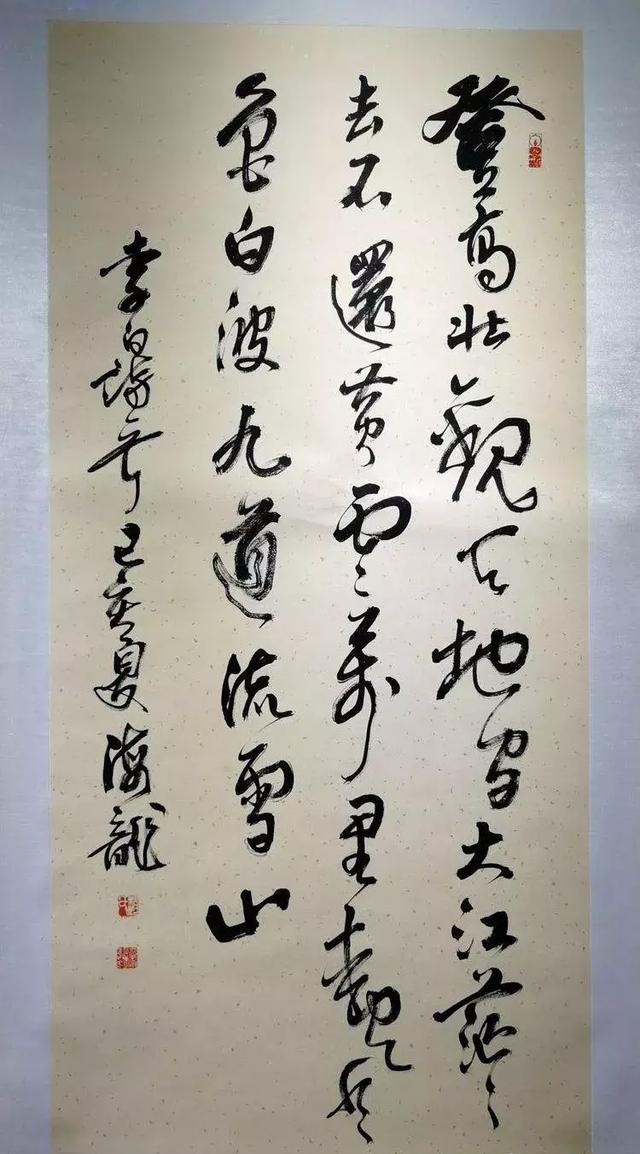 登高壯觀天地間大江茫々
去不還黃雲萬里動風
色白波九道流雪山
李白詩 己亥夏 海龍